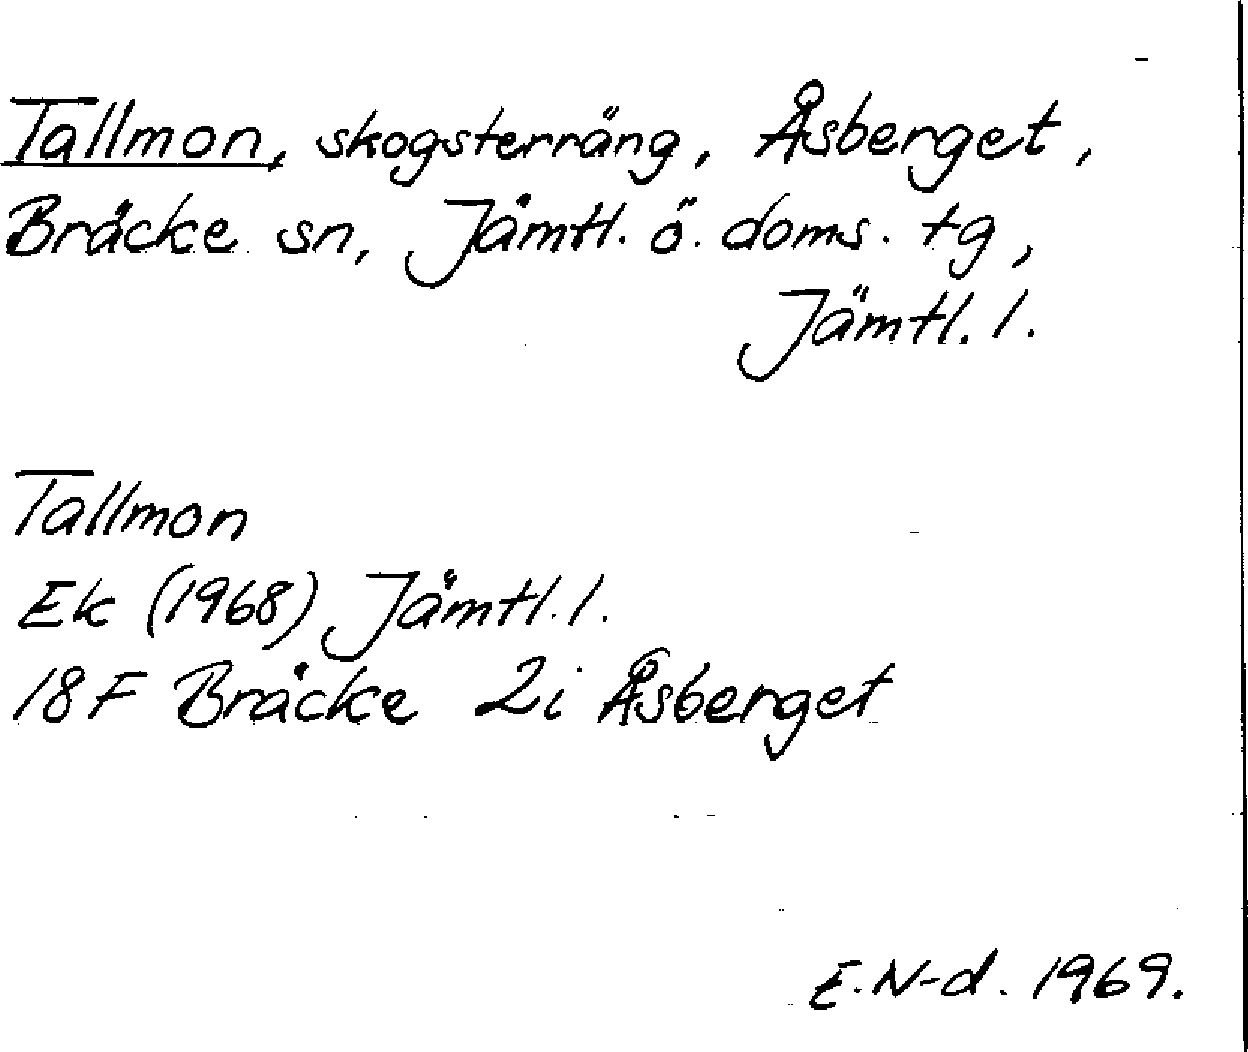 Tallmon, skogsterräng, Åsberget,
Bräcke sn, Jämtl. ö. doms. tg,
Jämtl. l.
Tallmon
Ek (1968) Jämtl. l.
18F Bräcke 2i Åsberget
E. N-d. 1969.